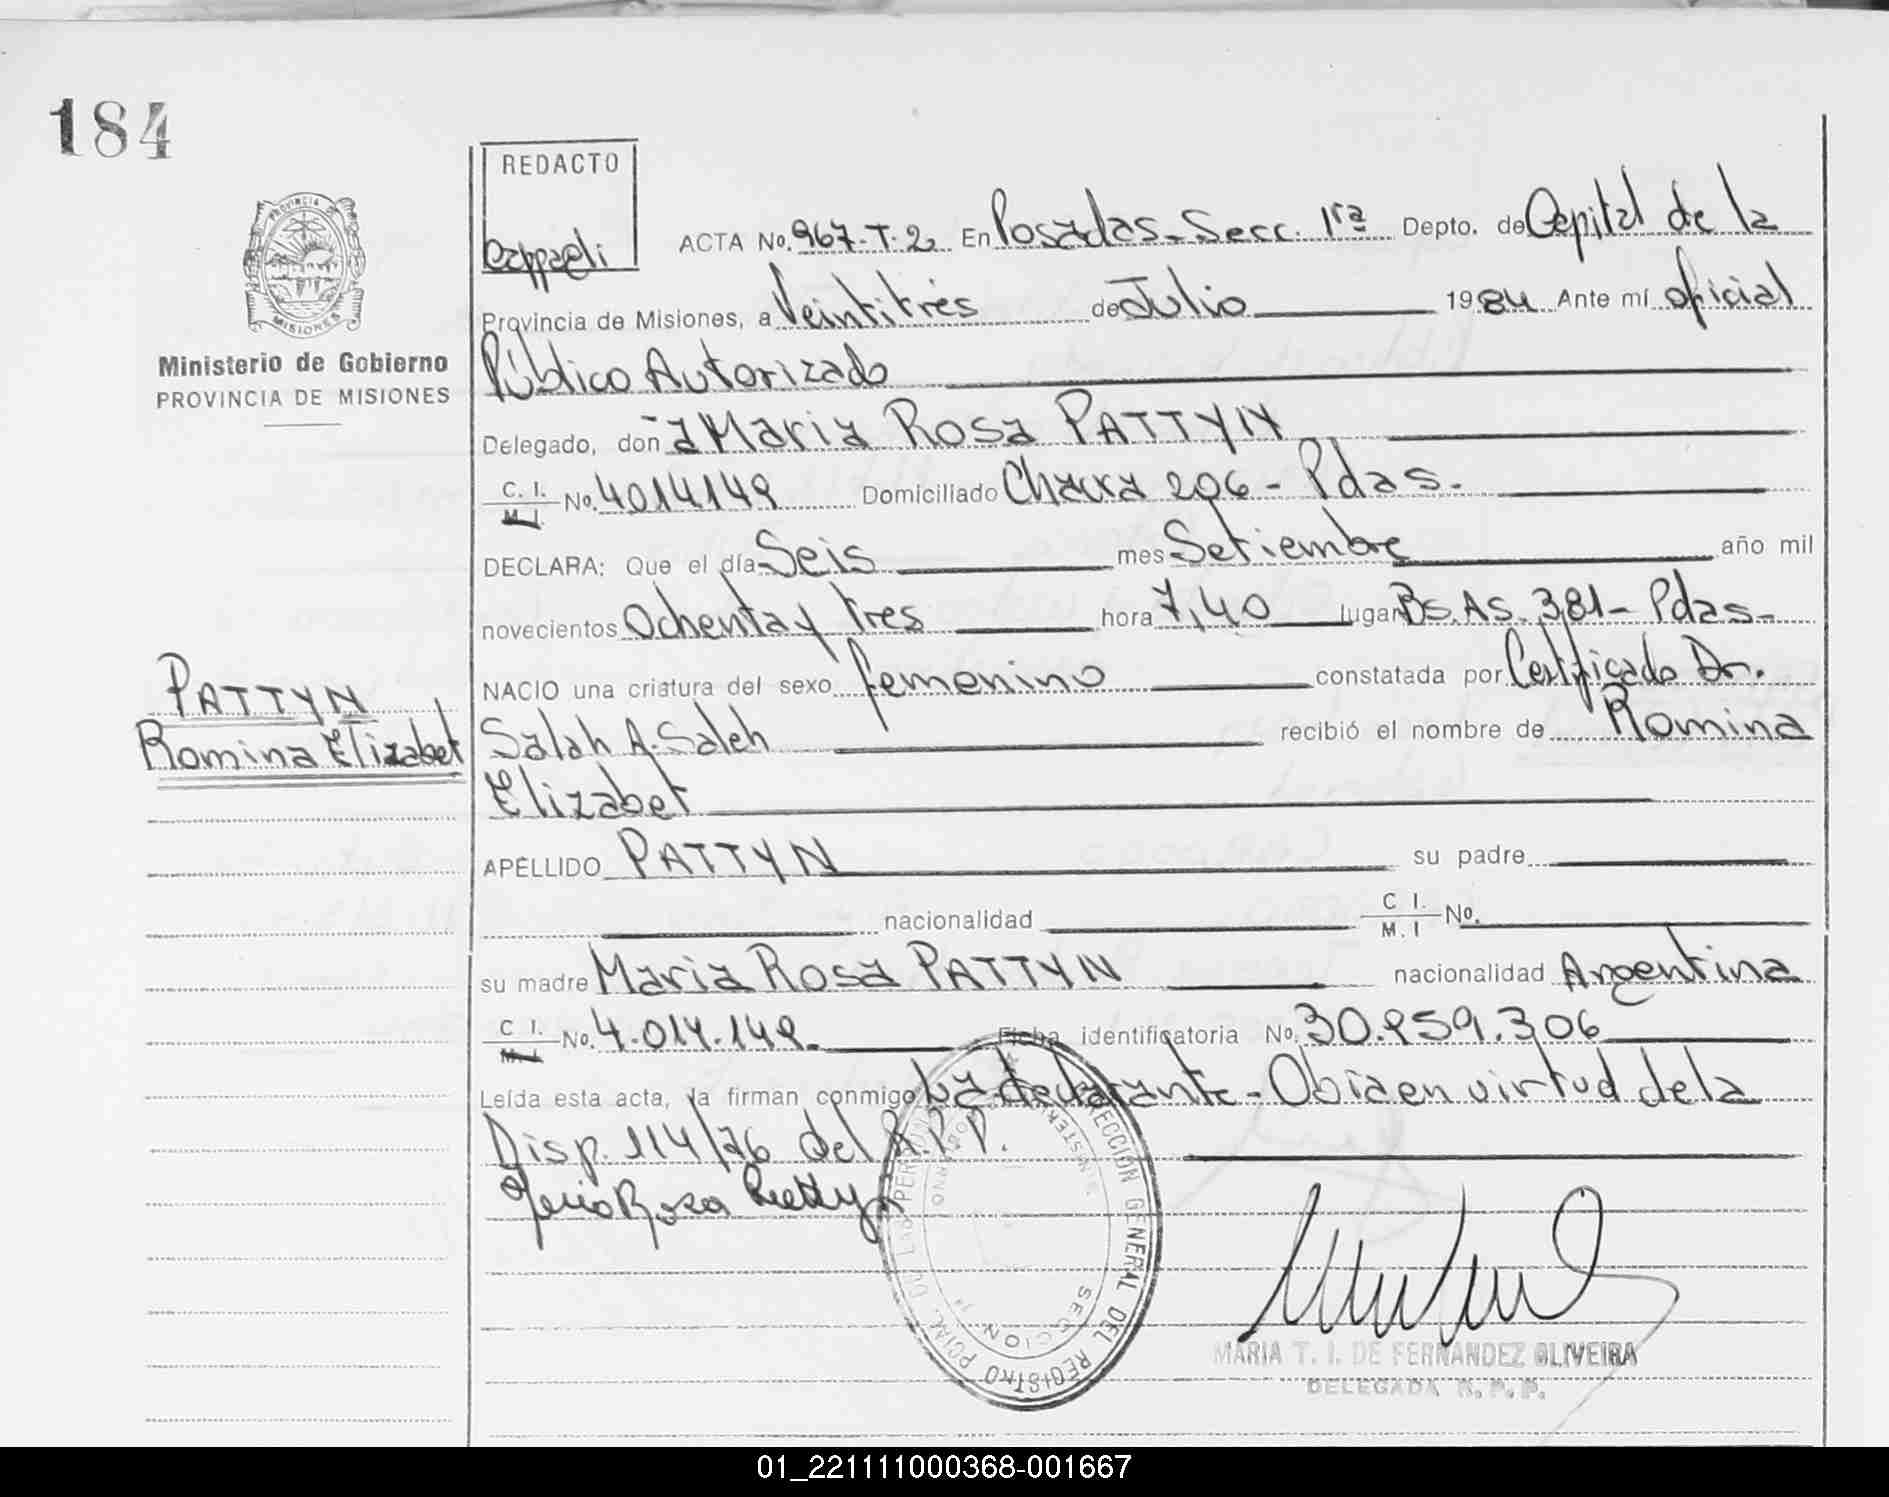 184
REDACTO
Cappaeli
PROVINCIA
MISIONES
Ministerio de Gobierno
PROVINCIA DE MISIONES
ACTA No. 967-T-2 En Posadas-Secc. 1ra Depto. de Capital de la
Provincia de Misiones, a Veintitrés de Julio 1984 Ante mí oficial
Público Autorizado
Delegado, don~a Maria Rosa PATTYN
C. I. M. I. No. 4014149 Domiciliado Chacra 206 - Pdas.
DECLARA: Que el día Seis mes Setiembre año mil
novecientos Ochenta y tres hora 7,40 lugar Bs. As. 381 - Pdas-
NACIO una criatura del sexo femenino constatada por Certificado Dr.
Salah A. Saleh recibió el nombre de Romina
Elizabet
PATTYN
Romina Elizabet
APELLIDO PATTYN su padre
nacionalidad C I. M. I No.
su madre Maria Rosa PATTYN nacionalidad Argentina
C I. M. I. No. 4.014.149. Ficha identificatoria No. 30.859.306
Leída esta acta, la firman conmigo La declarante - Obra en virtud de la
Disp. 114/76 del R.P.P.
Maria Rosa Pattyn
DIRECCION GENERAL DEL REGISTRO PCIAL. DE LAS PERSONAS
SECCION 1ª
MARIA T. I. DE FERNANDEZ OLIVEIRA
DELEGADA R. P. P.
01_221111000368-001667